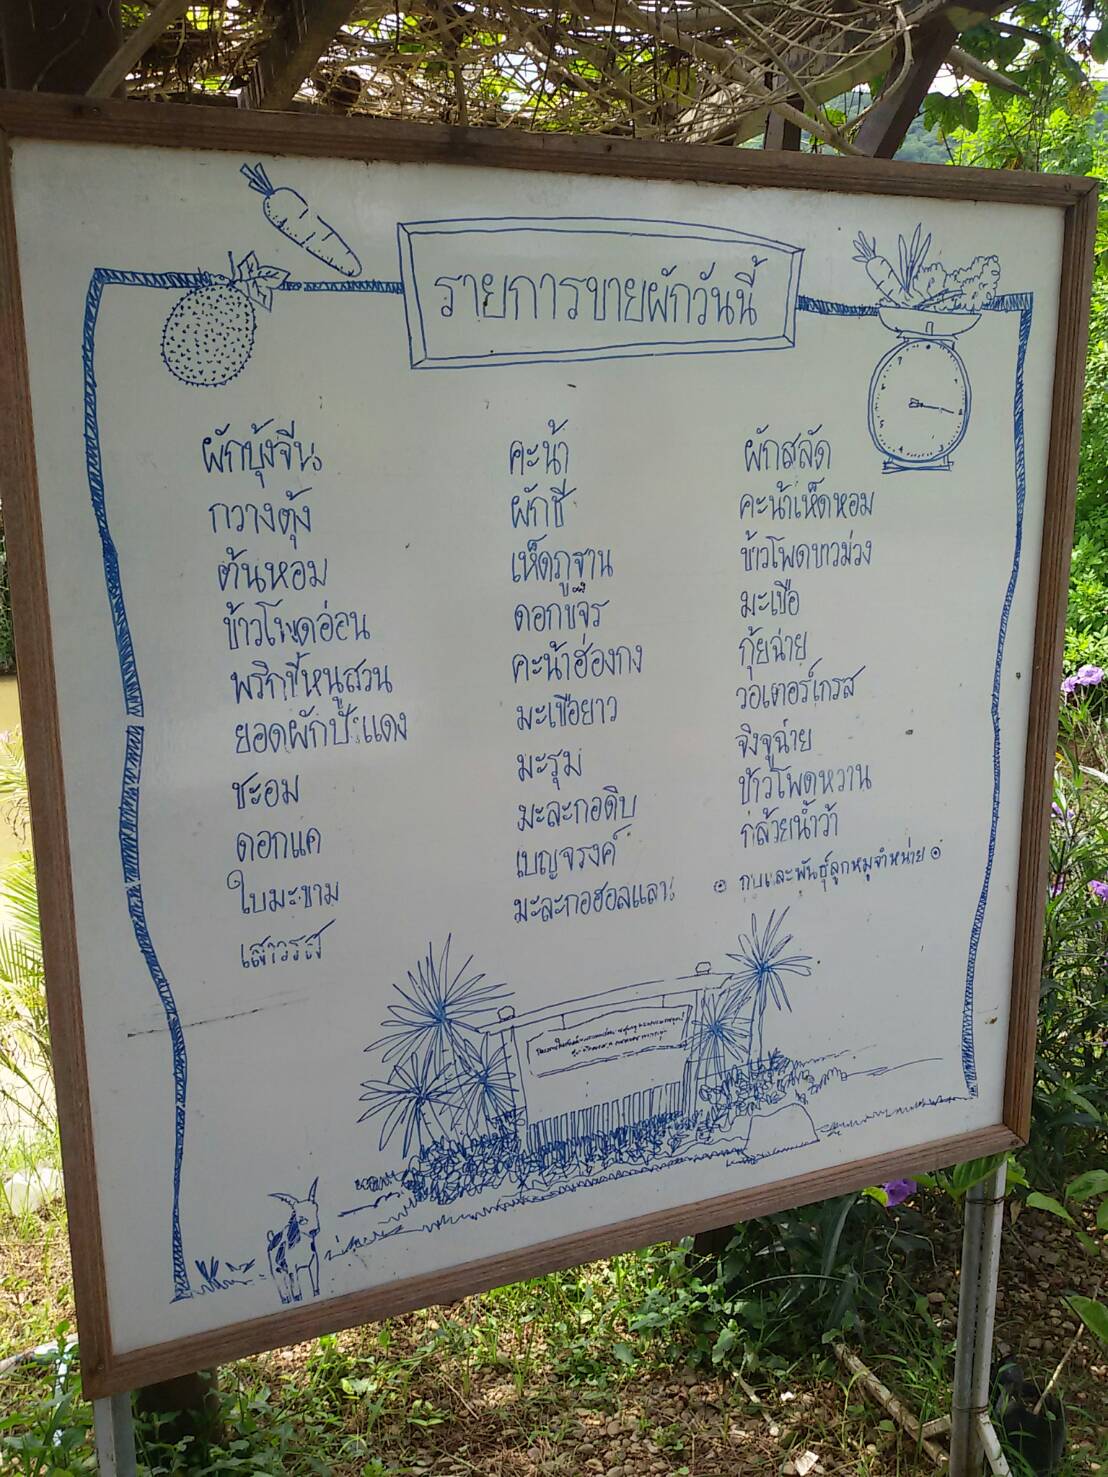 รายการขายผักวันนี้
ผักบุ้งจีน
กวางตุ้ง
ต้นหอม
ข้าวโพดอ่อน
พริกขี้หนูสวน
ยอดผักปังแดง
ชะอม
ดอกแค
ใบมะขาม
เสาวรส
คะน้า
ผักชี
เห็ดภูฐาน
ดอกขจร
คะน้าฮ่องกง
มะเขือยาว
มะรุม
มะละกอดิบ
เบญจรงค์
มะละกอฮอลแลน
ผักสลัด
คะน้าเห็ดหอม
ข้าวโพดขาวม่วง
มะเขือ
กุ้ยฉ่าย
วอเตอร์เกรส
จิงจูฉ่าย
ข้าวโพดหวาน
กล้วยน้ำว้า
กบและพันธุ์ลูกหมูจำหน่าย